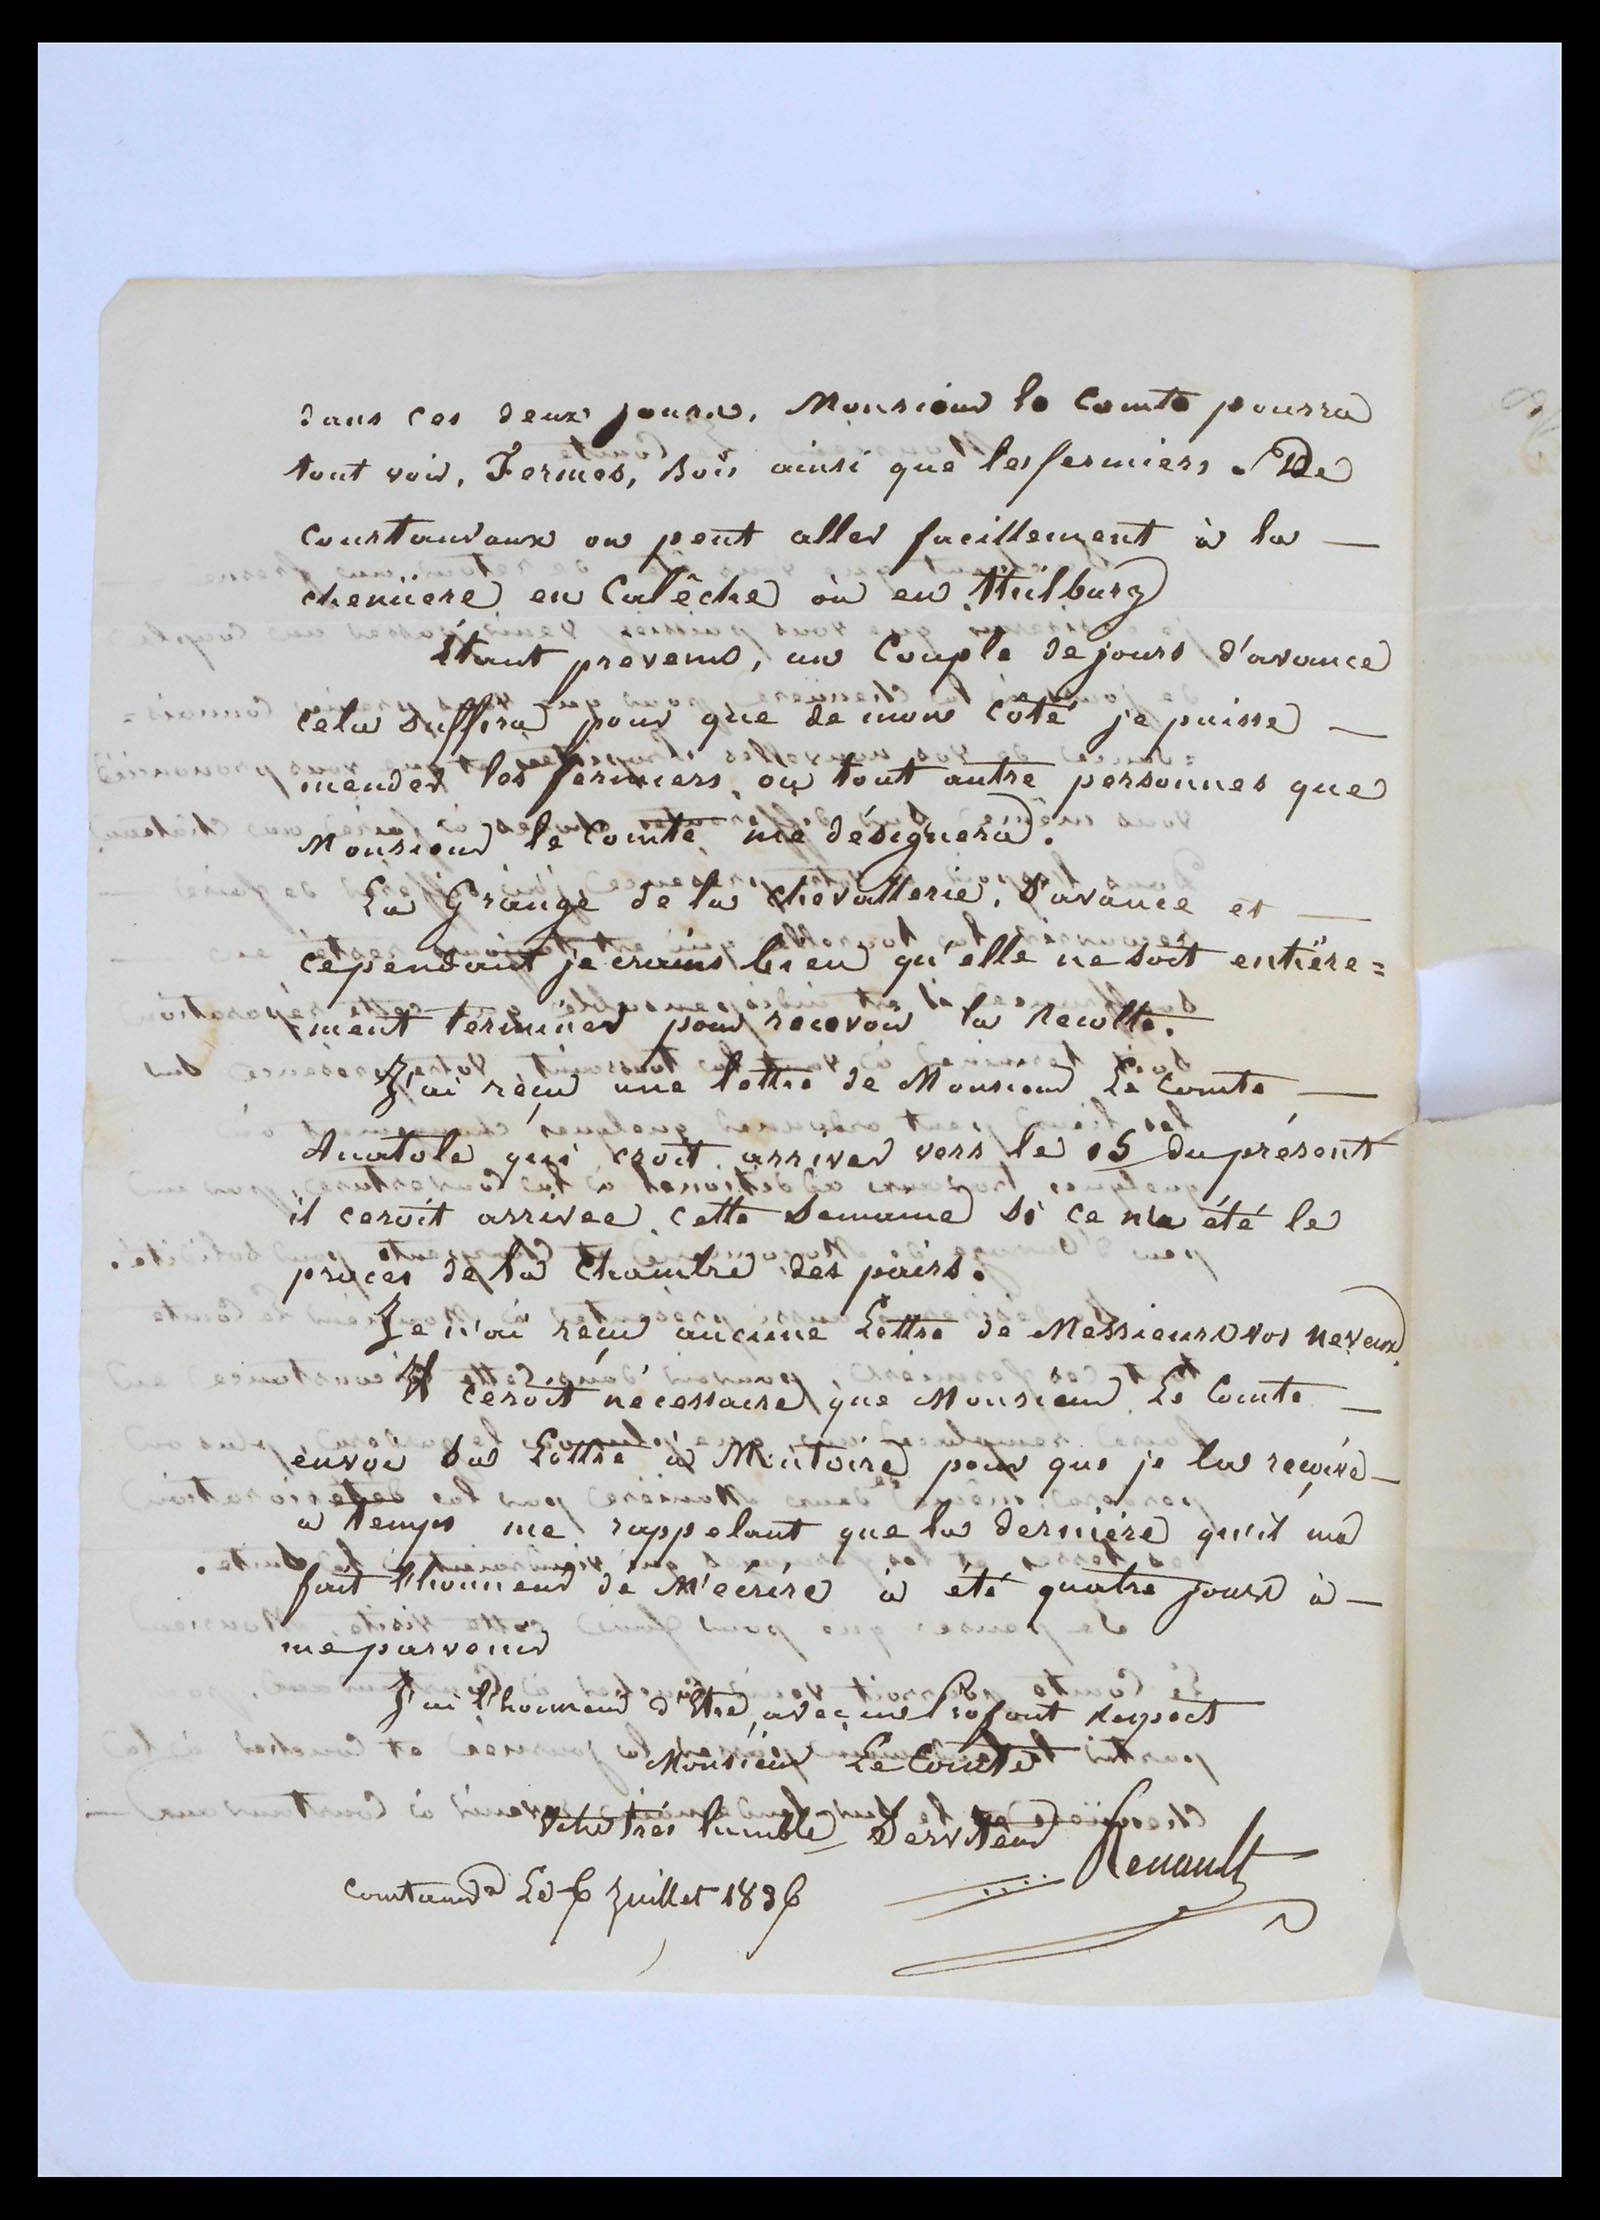 dans ces deux jours, Monsieur le Comte pourra
tout voir, Fermes, Bois ainsi que les fermiers. De
Courtanvaux on peut aller facillement à la —
cheniiere en Calêche où en Thilbury
Etant prevenu, un Couple de jours d'avance
cela Suffira pour que de mon côté je puisse —
mender les fermiers ou tout autre personnes que
Monsieur le Comte me désignera.
La Grange de la chevallerie, S'avance et —
cependant je crains bien qu'elle ne Soit entiére=
ment terminer pour recevoir la Recolte.
J'ai réçu une lettre de Monsieur Le Comte —
Anatole qui croit arriver vers le 15 du présent
il ceroit arrivee cette Semaine Si ce n'a été le
procés de la Chambre des pairs.
Je n'ai reçu aucune Lettre de Messieurs vos neveux.
Il ceroit nécessaire que Monsieur Le Comte —
envoi Sa Lettre à Montoire pour que je la reçoive —
a temps me rappelant que la derniére qu'il ma
fait l'honneur de M'écrire à été quatre jours à —
me parvenir
J'ai l'honneur d'Etre avec un Profont Respect
Monsieur Le Comte
Votre trés humble Serviteur
Renault
Le 6 Juillet 1836